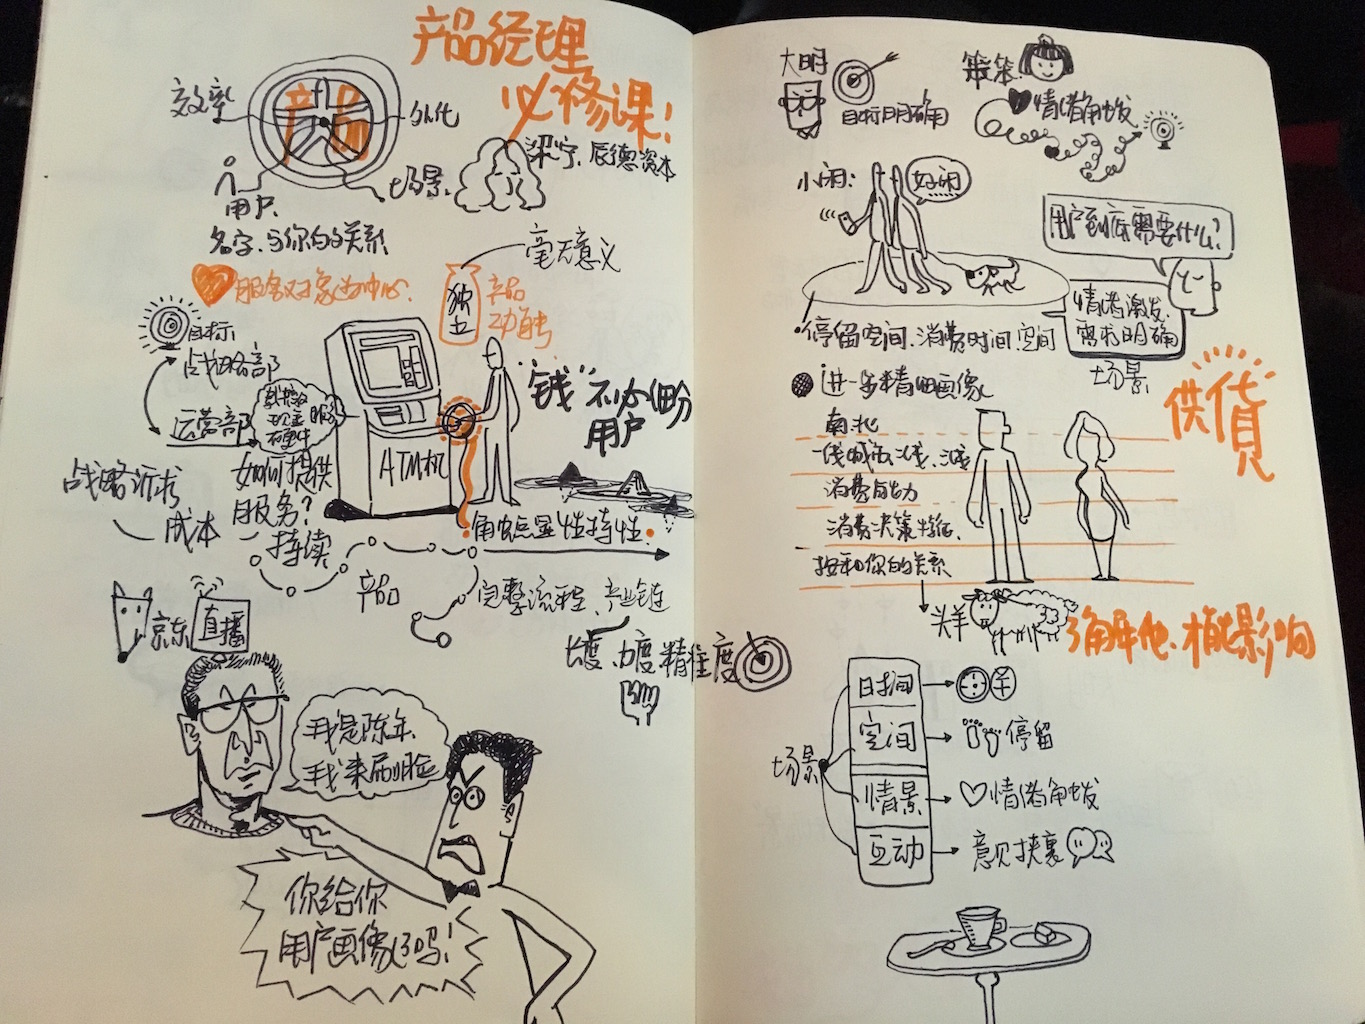 产品经理
必修课!
梁宁、辰德资本
效率
产品
优化
用户
场景
名字、与你的关系
服务对象为中心
毫无意义
独立
产品
功能
目标
战略部
运营部
服务
ATM机
"钱"不必(分
用户
战略诉求
成本
如何提供
服务?
持续
产品
角色点显性持性
完整流程、产业链
长度、力度精准度
京东
直播
我是陈年、
我来刷脸
你给你
用户画像了吗!
大明
目标明确
笨笨
情绪触发
小闲:
好闲
用户到底需要什么?
情绪激发、
需求明确
场景
停留空间、消费时间、空间
进一步精细画像
供货
南北
一线城市、二线、三线
消费能力
消费决策特征
按和你的关系
头羊
了解他、才能影响
场景
时间
空间
停留
情景
情绪触发
互动
意见挟裹